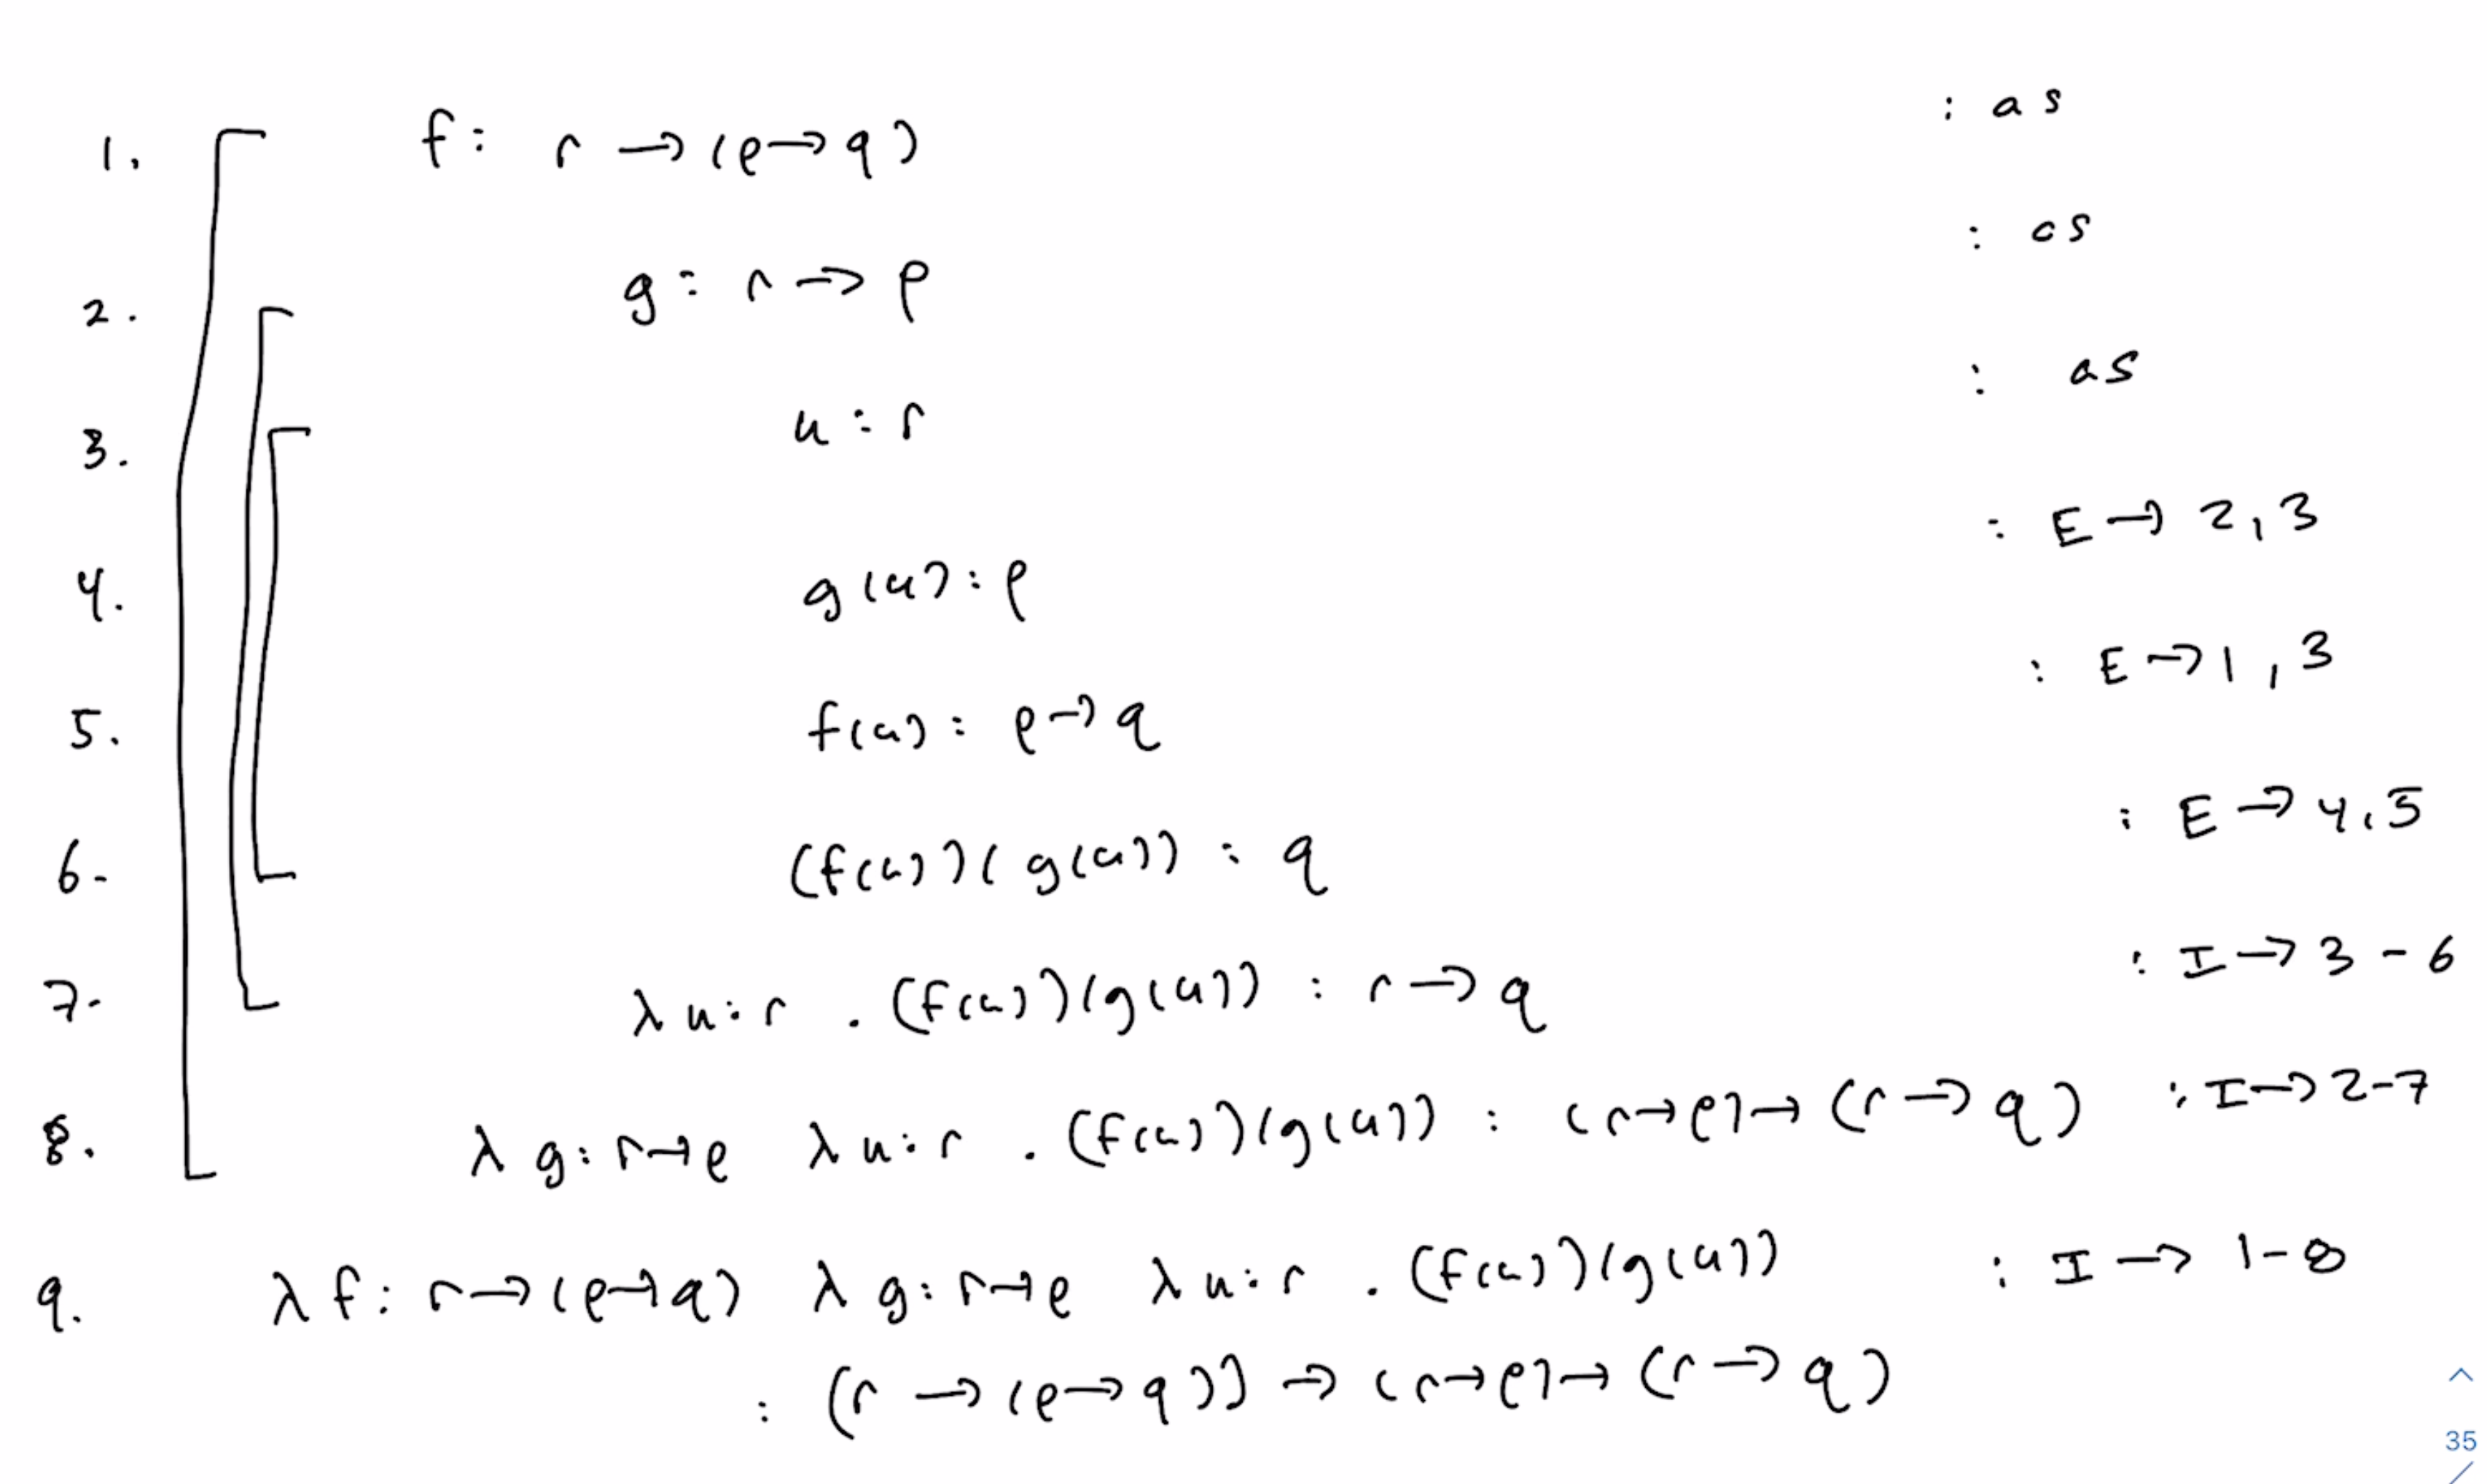 1. f : r → (p → q) : as
2. g : r → p : as
3. u : r : as
4. g(u) : p : E → 2,3
5. f(u) : p → q : E → 1,3
6. (f(u))(g(u)) : q : E → 4,5
7. λ u : r . (f(u))(g(u)) : r → q : I → 3-6
8. λ g : r → p λ u : r . (f(u))(g(u)) : (r → p) → (r → q) : I → 2-7
9. λ f : r → (p → q) λ g : r → p λ u : r . (f(u))(g(u)) : I → 1-8
: (r → (p → q)) → (r → p) → (r → q)
35